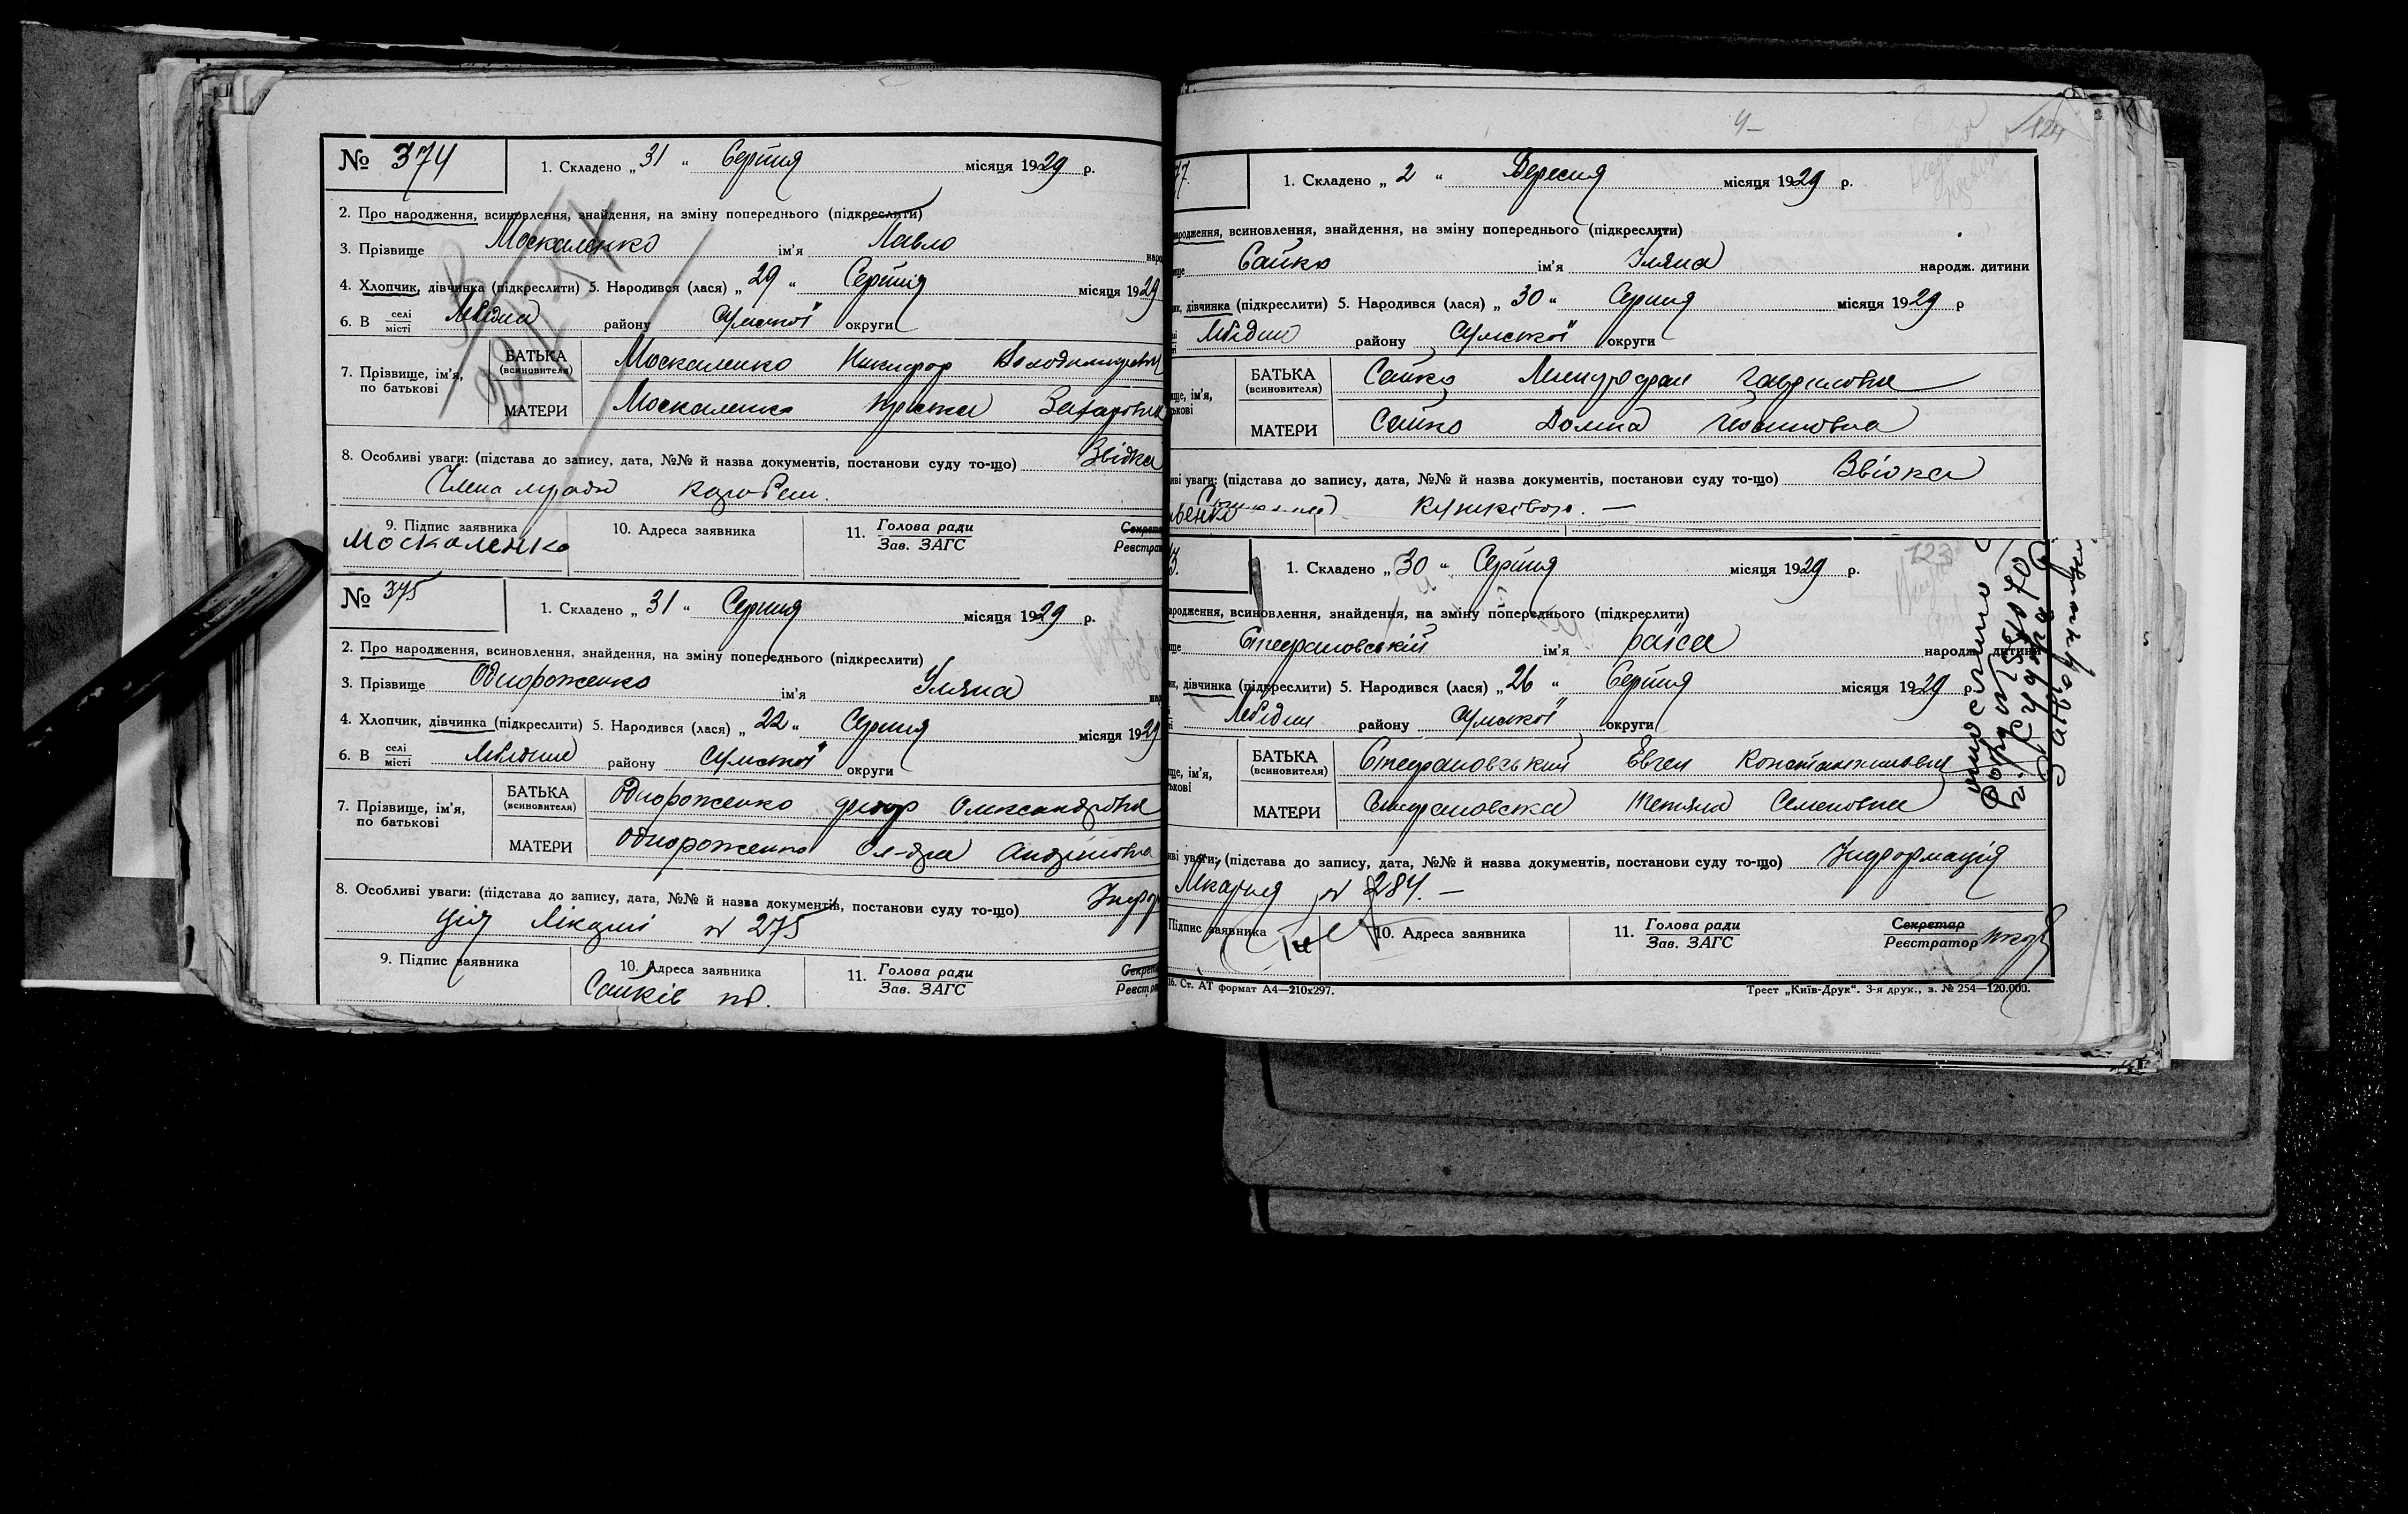 № 374
1. Складено „ 31 “ Серпня місяця 1929 р.
2. Про народження, всиновлення, знайдення, на зміну попереднього (підкреслити)
3. Прізвище Москаленко ім'я Павло
4. Хлопчик, дівчинка (підкреслити) 5. Народився (лася) „ 29 “ Серпня місяця 1929
6. В селі місті Лебедин району Сумської округи
7. Прізвище, ім'я, по батькові
БАТЬКА (всиновителя) Москаленко Никифор Володимирович
МАТЕРИ Москаленко Захаровна
8. Особливі уваги: (підстава до запису, дата, №№ й назва документів, постанови суду то-що) Звідка
Члена
9. Підпис заявника 10. Адреса заявника 11. Голова ради Зав. ЗАГС
Москаленко
№ 375
1. Складено „ 31 “ Серпня місяця 1929 р.
2. Про народження, всиновлення, знайдення, на зміну попереднього (підкреслити)
3. Прізвище Однороженко ім'я Уляна
4. Хлопчик, дівчинка (підкреслити) 5. Народився (лася) „ 22 “ Серпня місяця 1929
6. В селі місті Лебедин району Сумської округи
7. Прізвище, ім'я, по батькові
БАТЬКА (всиновителя) Однороженко Федор Олександрович
МАТЕРИ Однороженко Ол-дра Андріювна
8. Особливі уваги: (підстава до запису, дата, №№ й назва документів, постанови суду то-що) Інфор
ція Лікарні № 275
9. Підпис заявника 10. Адреса заявника 11. Голова ради Зав. ЗАГС
Сайків
124
77.
1. Складено „ 2 “ Вересня місяця 1929 р.
ародження, всиновлення, знайдення, на зміну попереднього (підкреслити)
Сайко ім'я Уляна народж. дитини
дівчинка (підкреслити) 5. Народився (лася) „ 30 “ Серпня місяця 1929 р
Лебедин району Сумської округи
БАТЬКА (всиновителя) Сайко Митрофан Гаврилович
МАТЕРИ Сайко Домна
уваги: (підстава до запису, дата, №№ й назва документів, постанови суду то-що) Звідка
3.
1. Складено „ 30 “ Серпня місяця 1929 р.
123
ародження, всиновлення, знайдення, на зміну попереднього (підкреслити)
Стефановський ім'я Раїса народж. дитини
дівчинка (підкреслити) 5. Народився (лася) „ 26 “ Серпня місяця 1929 р
Лебедин району Сумської округи
БАТЬКА (всиновителя) Стефановський Евген Константинович
МАТЕРИ Стефановська Тетяна Семеновна
уваги: (підстава до запису, дата, №№ й назва документів, постанови суду то-що) Інформація
Лікарня № 284. —
Підпис заявника 10. Адреса заявника 11. Голова ради Зав. ЗАГС Секретар Реєстратор
16. Ст. АТ формат А4—210х297.
Трест „Київ-Друк“. 3-я друк., з. № 254—120.000.